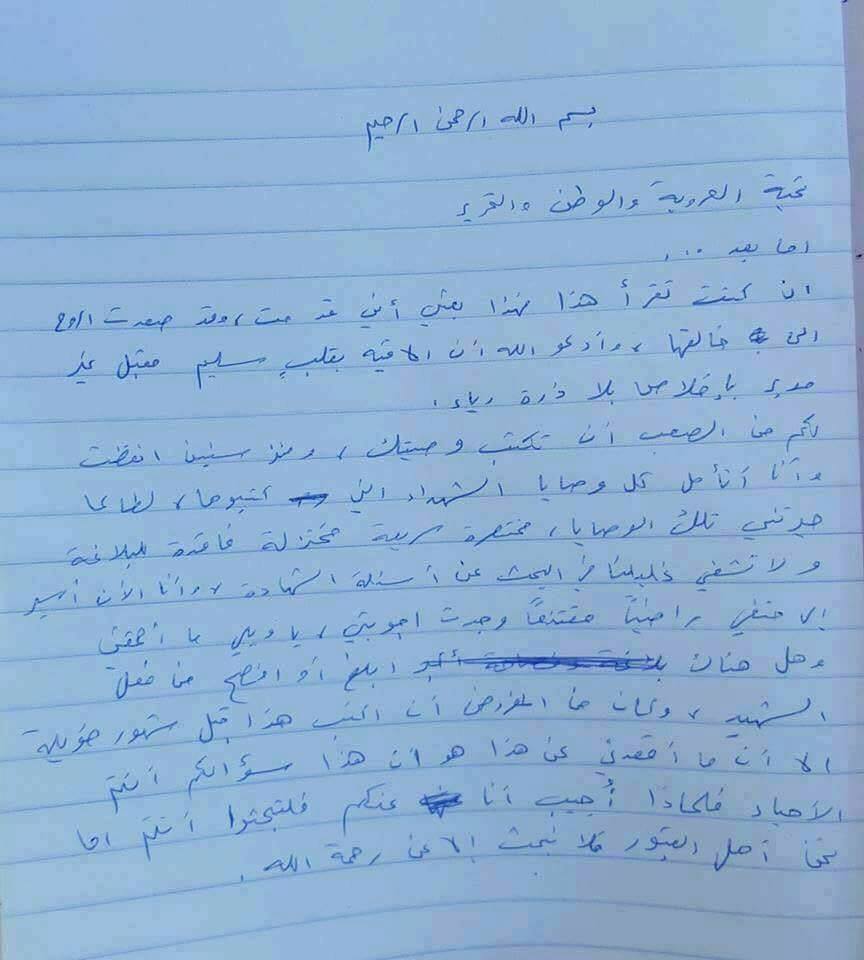 بسم الله الرحمن الرحيم
تحية العروبة والوطن والتحرير
اما بعد ...
ان كنت تقرأ هذا فهذا يعني أني قد مت، وقد صعدت الروح
الى خالقها، وأدعو الله أن الاقيه بقلبٍ سليم مقبل غير
مدبر بإخلاص بلا ذرة رياء.
لكم من الصعب أن تكتب وصيتك، ومنذ سنين انقضت
وأنا أتأمل كل وصايا الشهداء التي كتبوها، لطالما
حيرتني تلك الوصايا، مختصرة سريعة مختزلة فاقدة للبلاغة
ولا تشفي غليلنا في البحث عن أسئلة الشهادة، وأنا الآن أسير
إلى حتفي راضياً مقتنعاً وجدت اجوبتي، يا ويلي ما أحمقني
وهل هناك ابلغ أو افصح من فعل
الشهيد، وكان من المفروض أن اكتب هذا قبل شهور طويلة
الا أن ما أقعدني عن هذا هو أن هذا سؤالكم أنتم
الأحياء فلماذا أُجيب أنا عنكم فلتبحثوا أنتم اما
نحن أهل القبور فلا نبحث إلا عن رحمة الله.